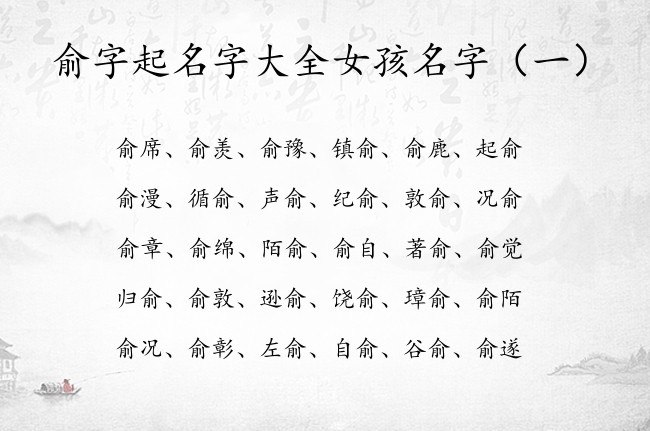 俞字起名字大全女孩名字（一）
俞席、俞羡、俞豫、镇俞、俞鹿、起俞
俞漫、循俞、声俞、纪俞、敦俞、况俞
俞章、俞绵、陌俞、俞自、著俞、俞觉
归俞、俞敦、逊俞、饶俞、璋俞、俞陌
俞况、俞彰、左俞、自俞、谷俞、俞遂